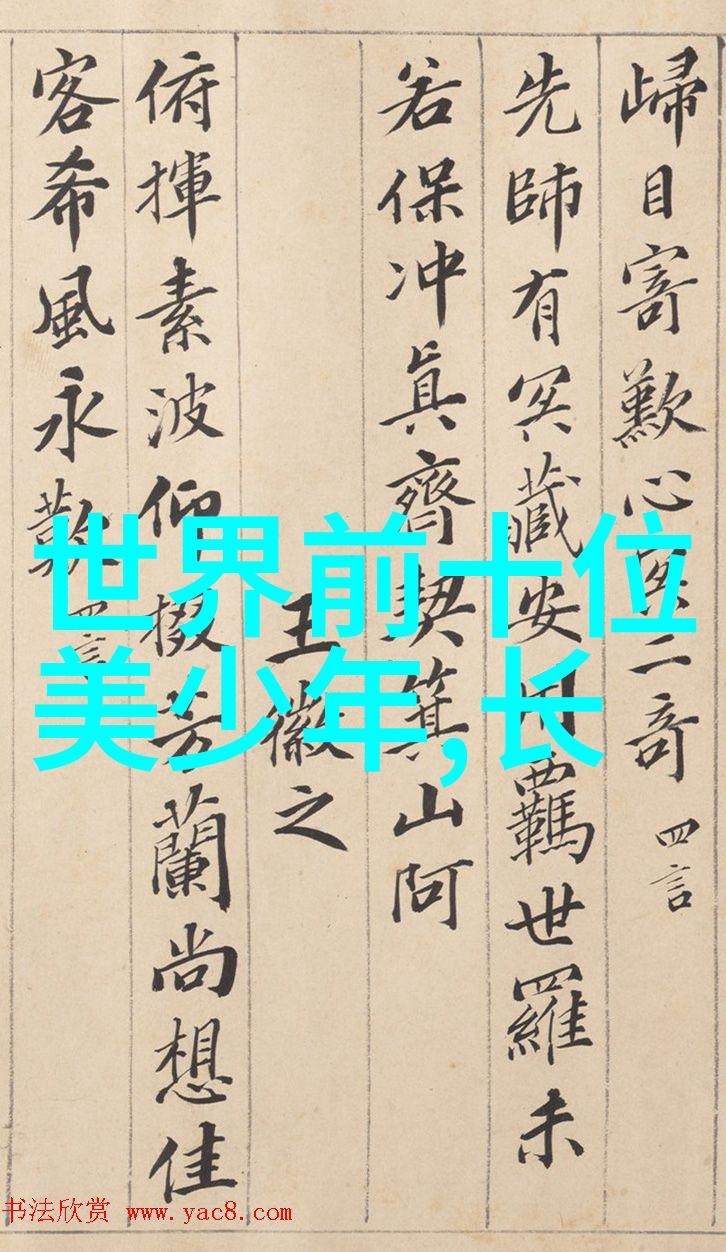 歸目寄歎心冥二奇 四言
先師有冥藏安用羈世羅未
若保冲眞齊契箕山阿
王徽之
俯揮素波仰掇芳蘭尚想佳
客希風永歎 四言
世界前十位
美少年,长
书法欣赏 www.yac8.com